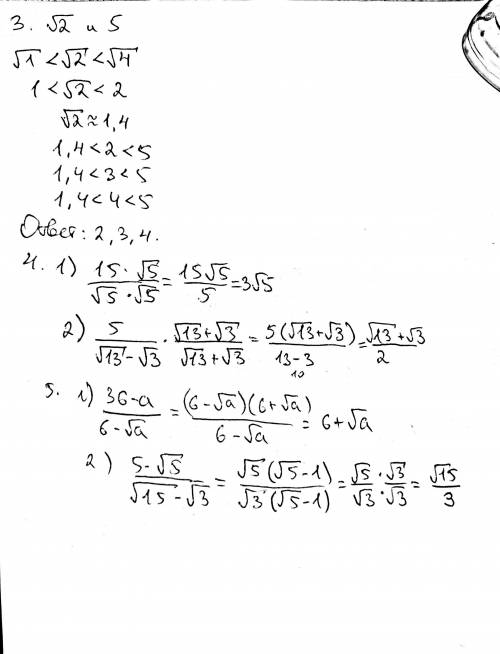 3. √2 и 5
√1 < √2 < √4
1 < √2 < 2
√2 ≈ 1,4
1,4 < 2 < 5
1,4 < 3 < 5
1,4 < 4 < 5
Ответ: 2, 3, 4.
4. 1) (15 · √5)/(√5 · √5) = 15√5/5 = 3√5
2) 5/(√13 - √3) · (√13 + √3)/(√13 + √3) = 5(√13 + √3)/(13 - 3) = (√13 + √3)/2
10
5. 1) (36 - a)/(6 - √a) = (6 - √a)(6 + √a)/(6 - √a) = 6 + √a
2) (5 - √5)/(√15 - √3) = √5(√5 - 1)/(√3(√5 - 1)) = (√5 · √3)/(√3 · √3) = √15/3